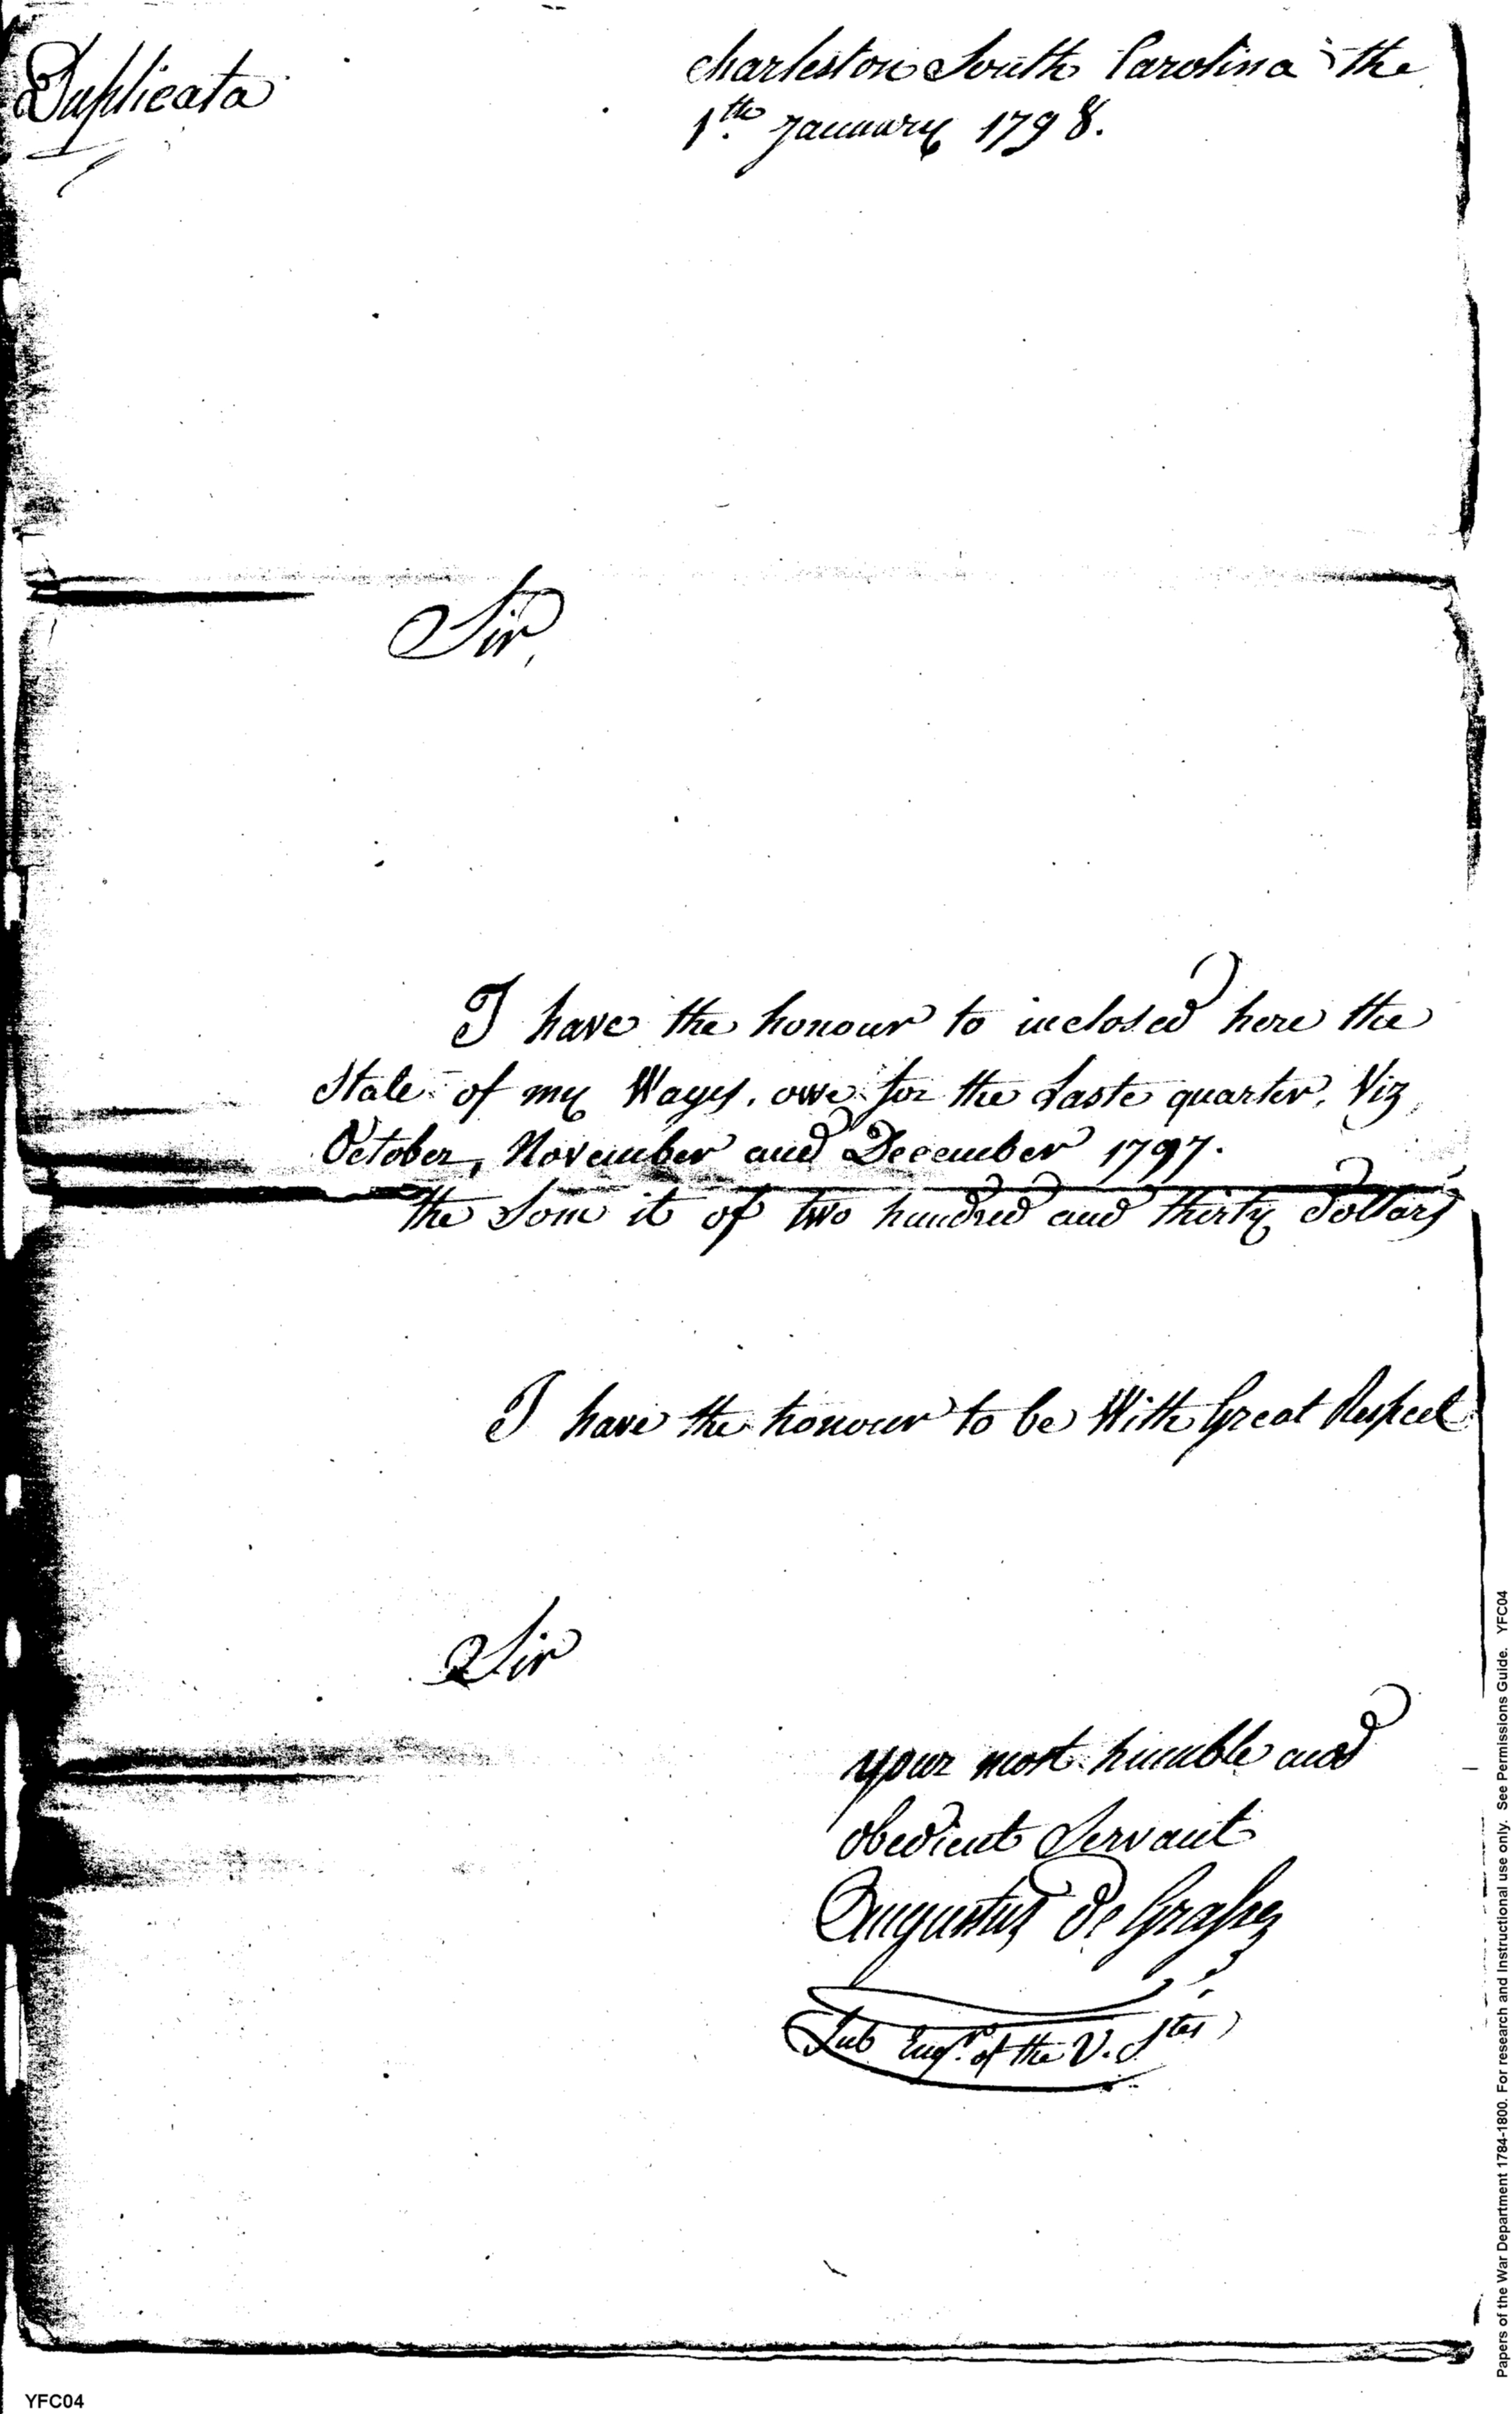 Duplicata
Charleston South Carolina the
1th. January 1798.
Sir,
I have the honour to inclosed here the
State of my Wages, owe for the Laste quarter, Viz,
October, November and December 1797.
the Som it of two hundred and thirty Dollars
I have the honour to be With Great Respect
Sir
your most humble and
obedient Servant
Augustus De Grasse
Sub Engr. of the U. Stes
Papers of the War Department 1784-1800. For research and Instructional use only. See Permissions Guide. YFC04
YFC04